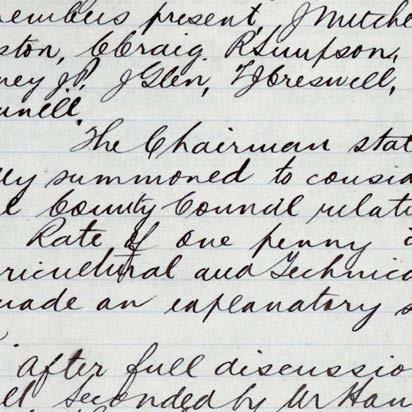 members present, J Mitche
ston, C Craig, R Simpson,
ney J.P, J Glen, T J Creswell,
unell.
The Chairman stat
lly summoned to consid
e County Council relat
Rate of one penny
ricultural and Technica
made an explanatory s
After full discussio
ll, seconded by Mr Han